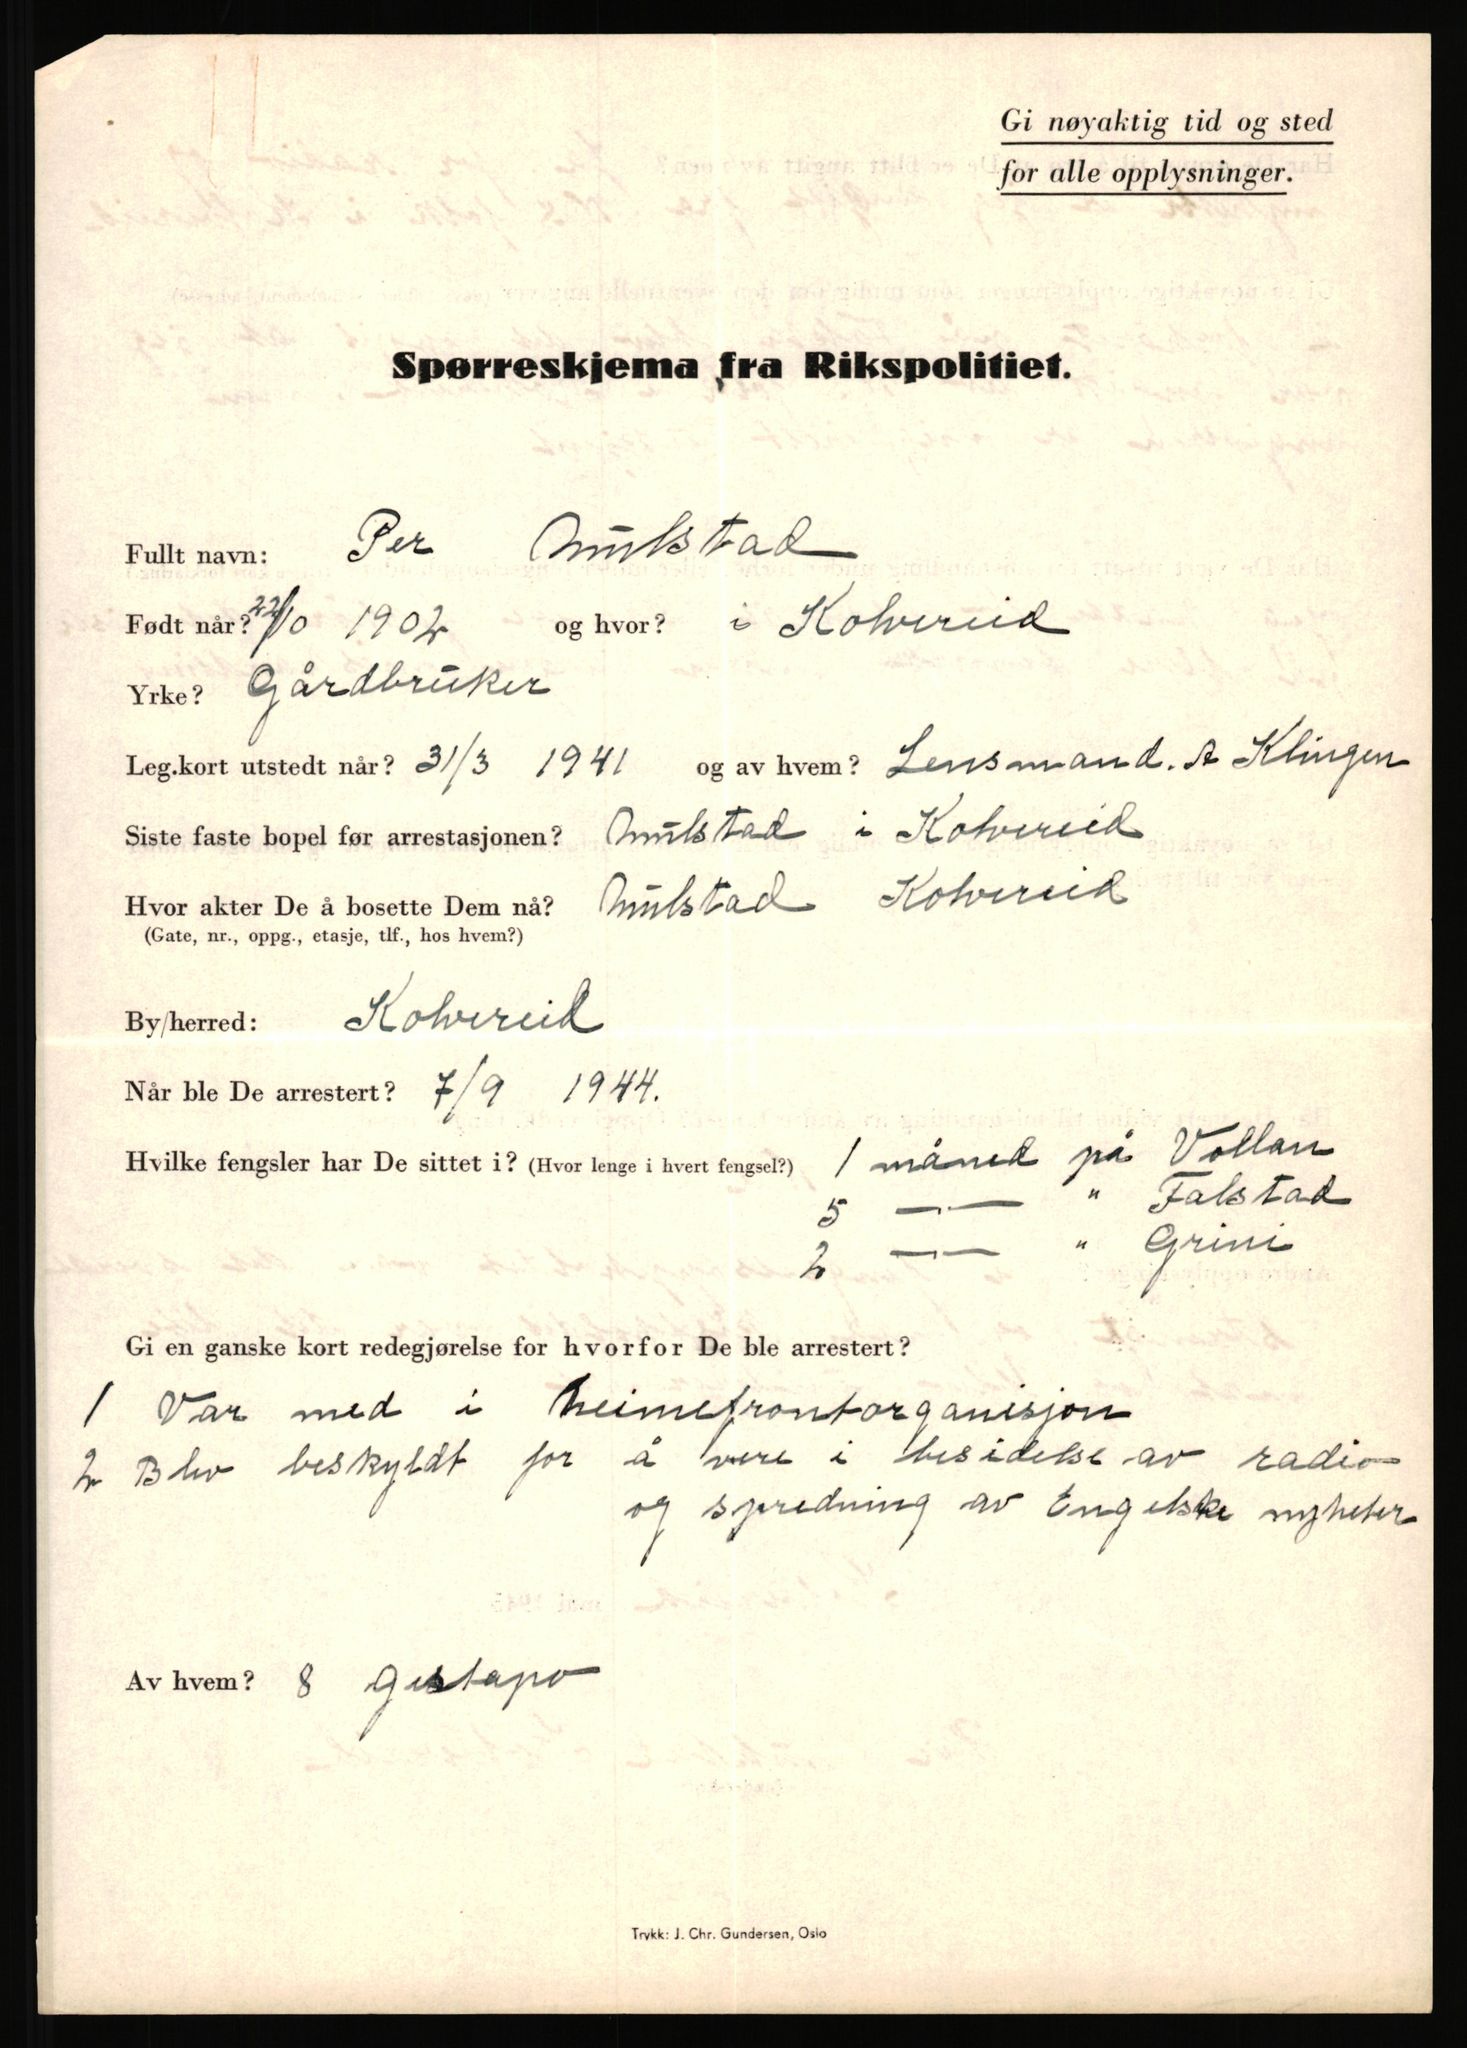 Gi nøyaktig tid og sted
for alle opplysninger.
Spørreskjema fra Rikspolitiet.
Fullt navn: Per Mulstad
Født når? 22/10 1902 og hvor? i Kolvereid
Yrke? Gårdbruker
Leg.kort utstedt når? 31/3 1941 og av hvem? Lensmand. A Klingen
Siste faste bopel før arrestasjonen? Mulstad i Kolvereid
Hvor akter De å bosette Dem nå? Mulstad Kolvereid
(Gate, nr., oppg., etasje, tlf., hos hvem?)
By/herred: Kolvereid
Når ble De arrestert? 7/9 1944.
Hvilke fengsler har De sittet i? (Hvor lenge i hvert fengsel?) 1 måned på Vollan
5 —"— " Falstad
2 —"— " Grini
Gi en ganske kort redegjørelse for hvorfor De ble arrestert?
1 Var med i heimefrontorganisjon
2 Blev beskyldt for å vere i besidelse av radio
og spredning av Engelske nyheter
Av hvem? 8 gestapo
Trykk: J. Chr. Gundersen, Oslo